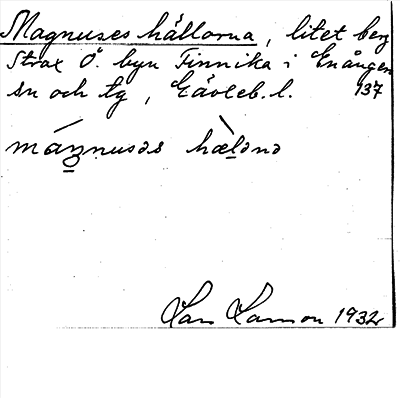 Magnuses hällorna, litet berg
strax Ö. byn Finnika i Enånger
sn och tg, Gävleb. l. 137
máŋnusəs hæ̀lənə
Lars Larsson 1932